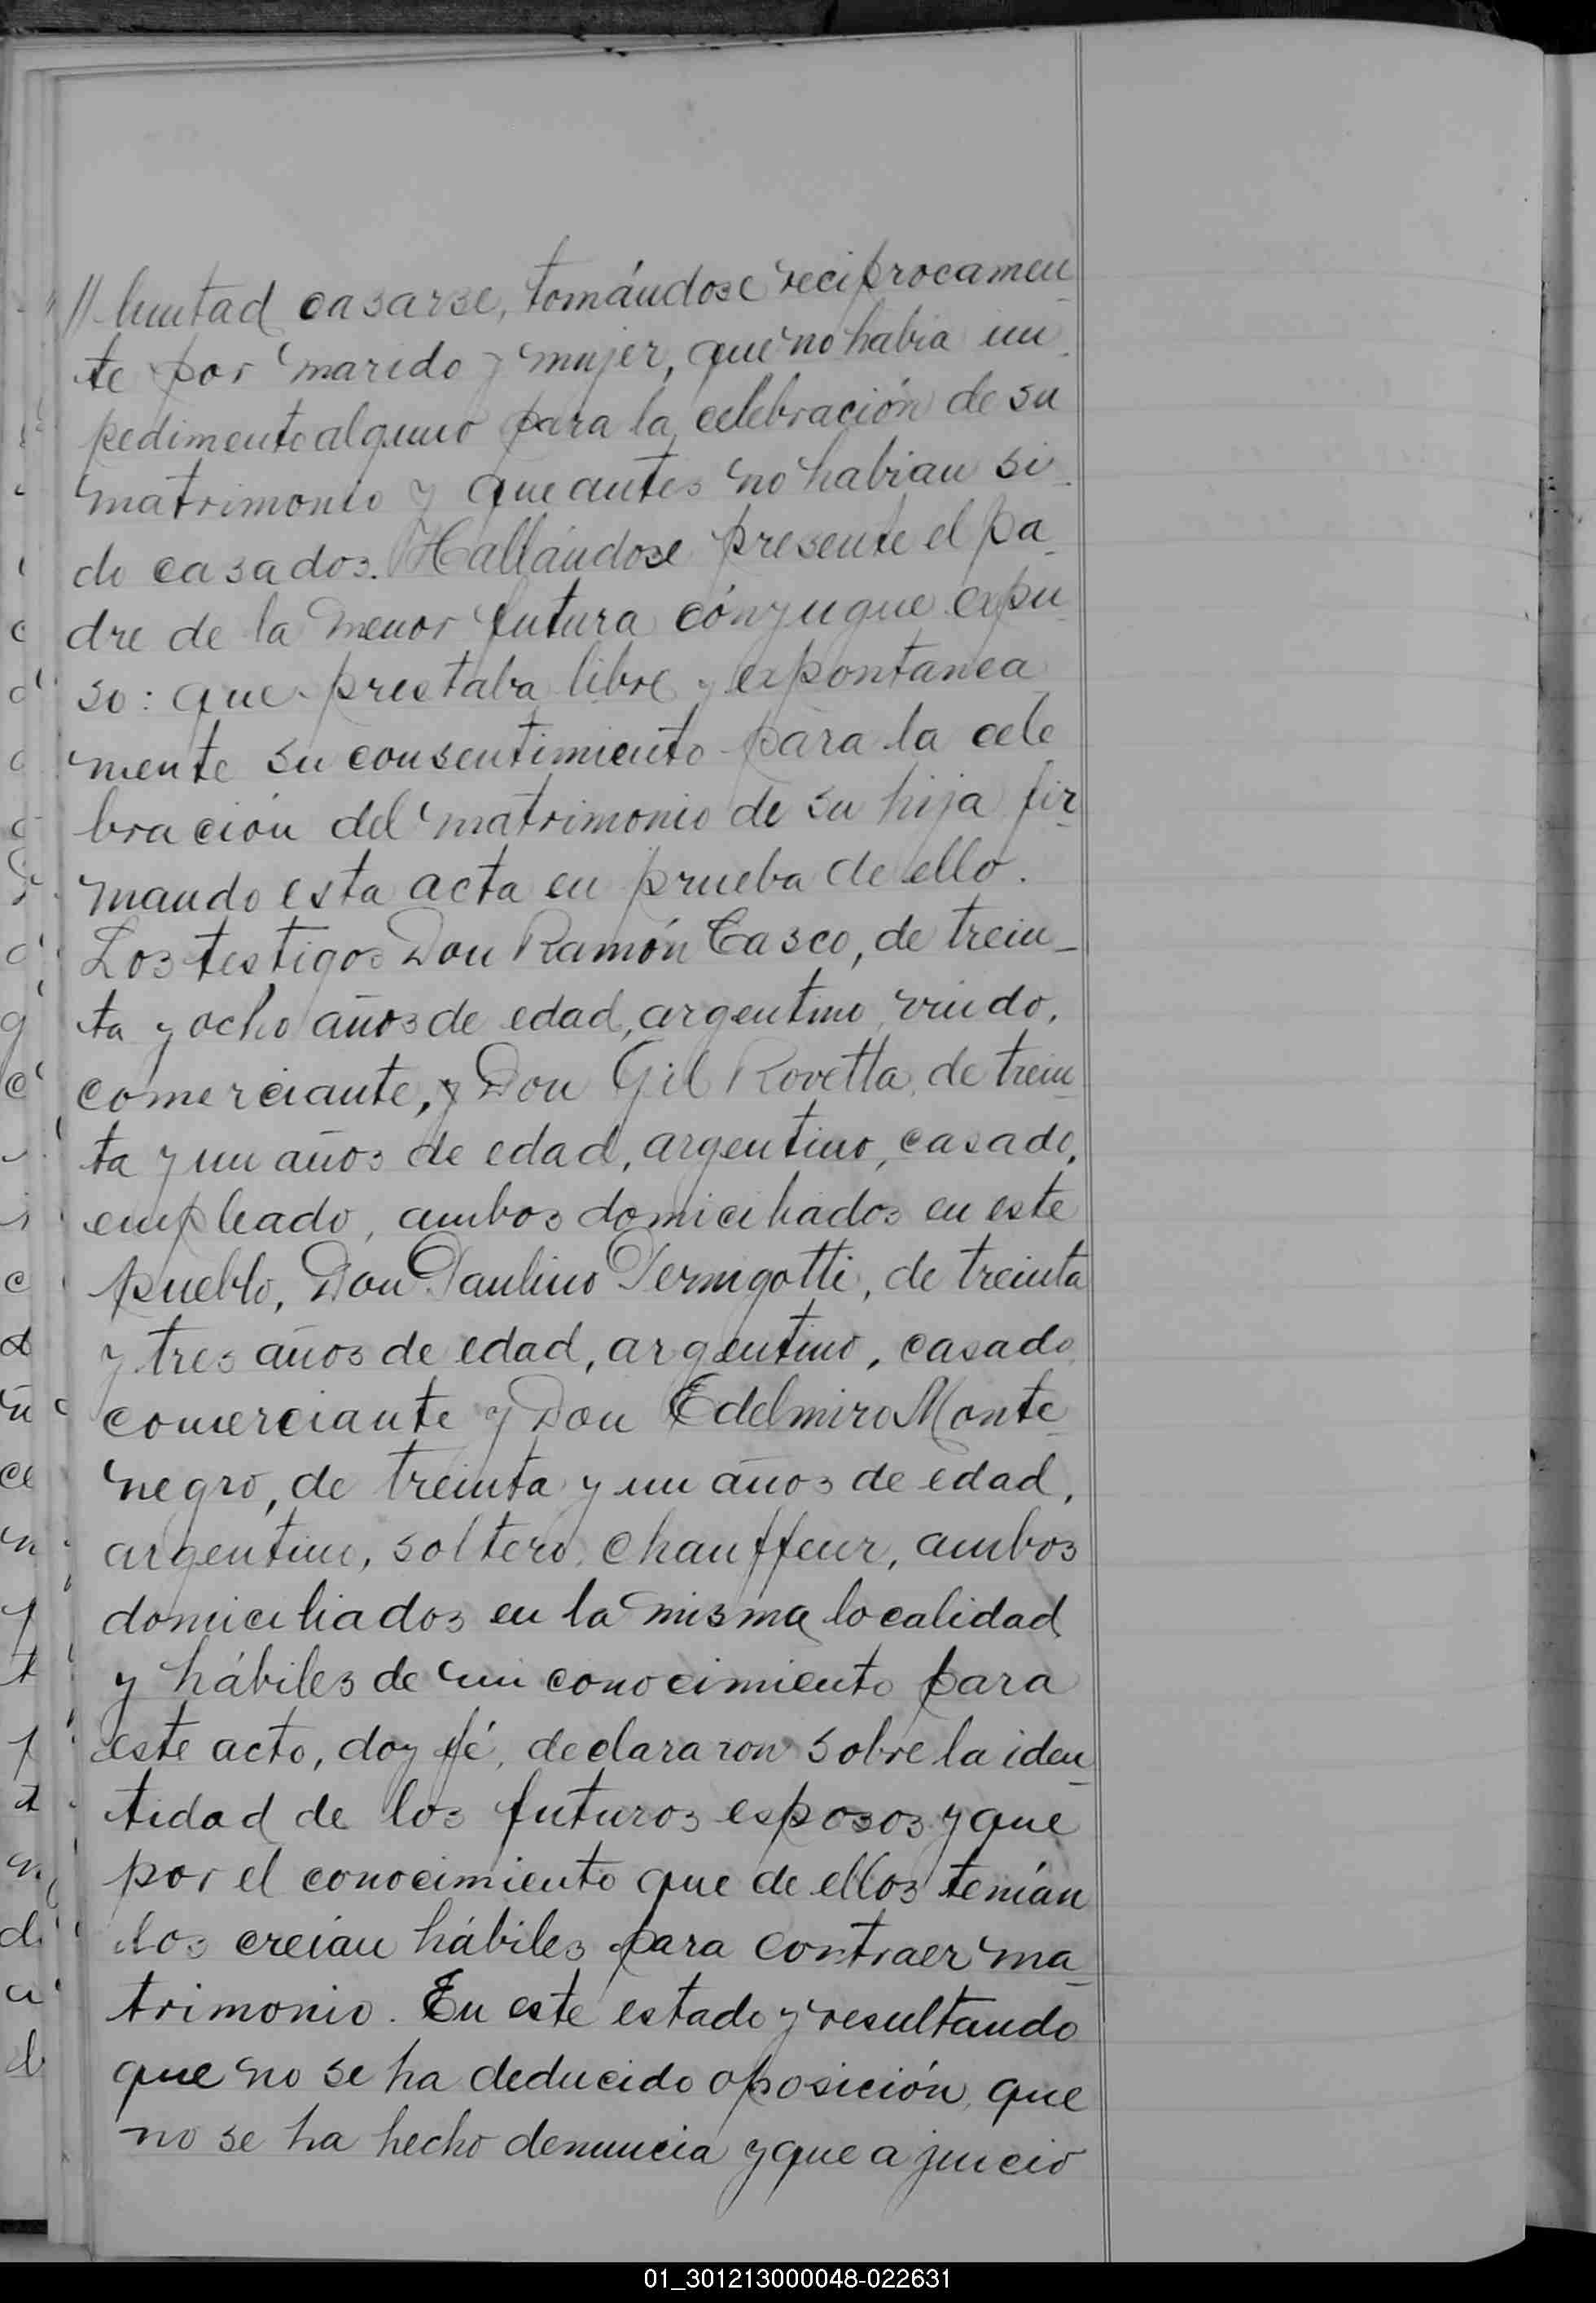 // luntad casarse, tomándose reciprocamen_
te por marido y mujer, que no habia im_
pedimento alguno para la celebración de su
matrimonio y que antes no habian si_
do casados. Hallándose presente el pa_
dre de la menor futura cónyugue expu_
so: que prestaba libre y expontanea_
mente su consentimiento para la cele_
bración del matrimonio de su hija fir_
mando esta acta en prueba de ello.
Los testigos Don Ramón Casco, de trein_
ta y ocho años de edad, argentino, viudo,
comerciante, y Don Gil Rovetta, de trein_
ta y un años de edad, argentino, casado,
empleado, ambos domiciliados en este
pueblo, Don Paulino Pernigotti, de treinta
y tres años de edad, argentino, casado,
comerciante y Don Edelmiro Monte_
negro, de treinta y un años de edad,
argentino, soltero, chauffeur, ambos
domiciliados en la misma localidad
y hábiles de mi conocimiento para
este acto, doy fé, declararon sobre la iden_
tidad de los futuros esposos y que
por el conocimiento que de ellos tenían
los creían hábiles para contraer ma_
trimonio. En este estado y resultando
que no se ha deducido oposición, que
no se ha hecho denuncia y que a juicio
01_301213000048-022631